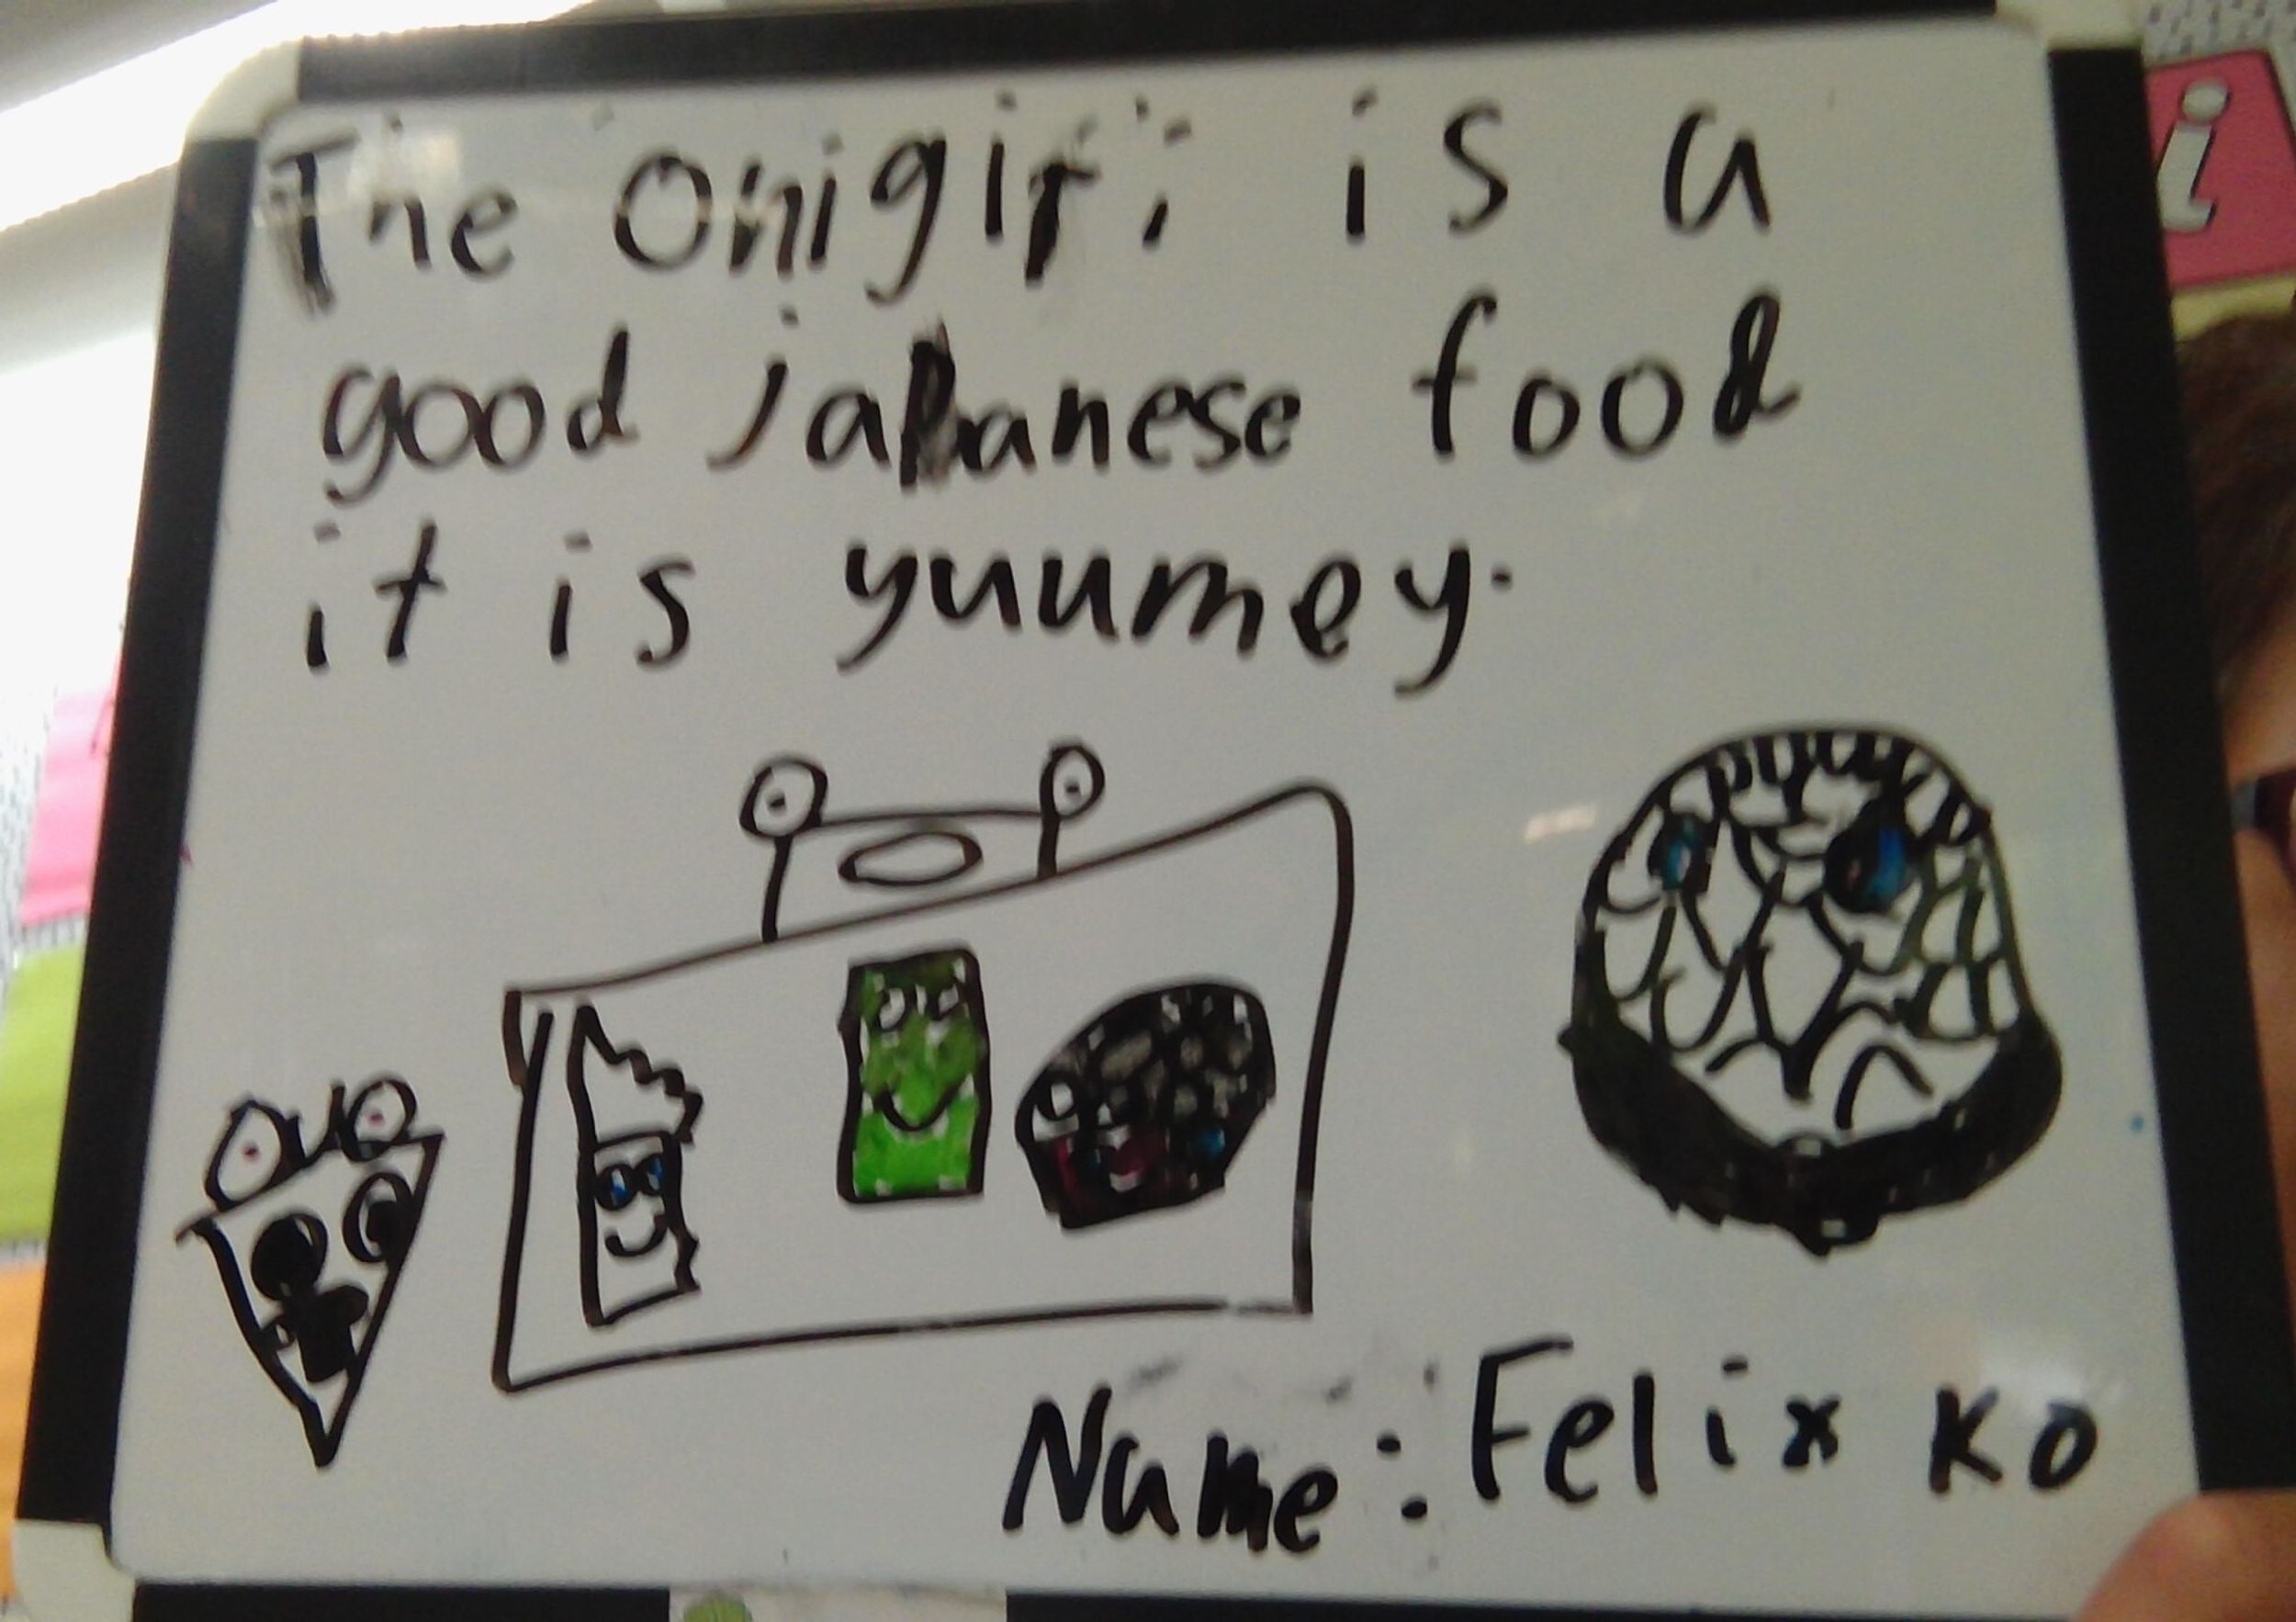 The Onigiri is a
good japanese food
it is yuumey.
Name: Felix Ko
i